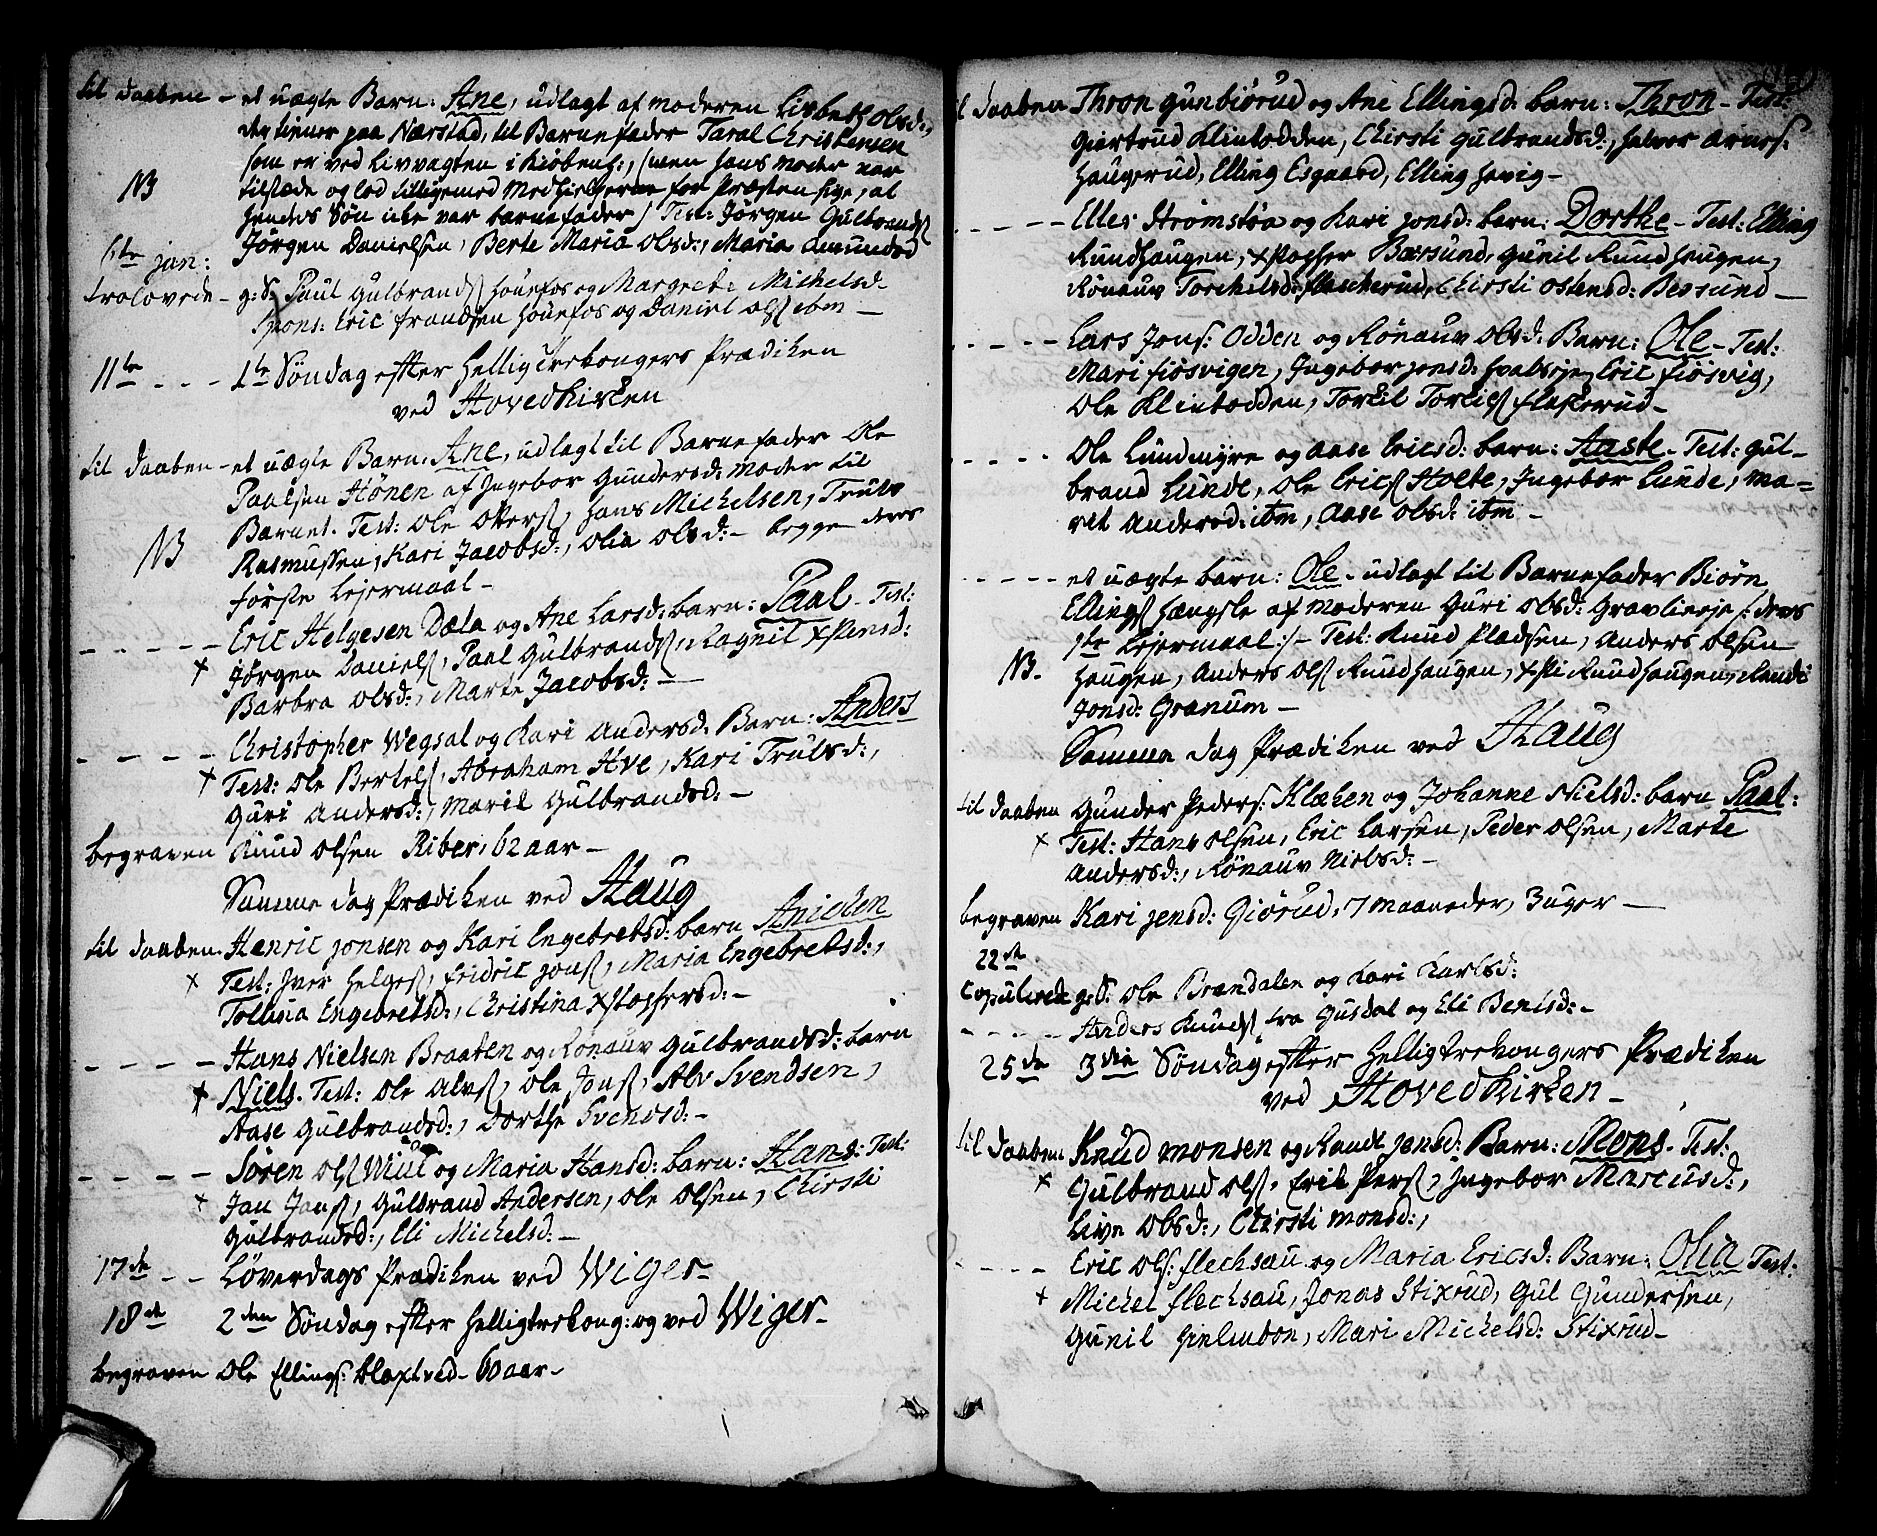 til daaben - et uægte Barn: Ane, udlagt af moderen Lisbeth Olsd:,
der tiener paa Nærstad, til Barnefader Taral Christensen
som er ved Livvagten i Kiøbenh:, (men hans moder var
NB tilstæde og lod tilligemed Medhielperne for Præsten sige, at
hendes Søn ikke var barnefader) Test: Jørgen Gulbrands
Jørgen Danielsen, Berte Maria Olsd:, Maria Amundsd
6te jan:
trolovede - g: S. Paul Gulbrands Hønefos og Margrete Michelsd
Spons: Eric Frandsen Hønefos og Daniel Ols ibm -
11te - - - 1te Søndag efter Hellig trekongers Prædiken
ved Hovedkirken
til daaben - et uægte Barn: Ane, udlagt til Barnefader Ole
Paalsen Hønen af Ingebor Gundersd: moder til
Barnet. Test: Ole Olers, Hans Michelsen, Truls
NB Rasmussen, Kari Jacobsd:, Olia Olsd: - begge deres
første Lejermaal -
- - - - - Eric Helgesen Dæla og Ane Larsd: barn: Paal - Test:
x Jørgen Daniels, Paal Gulbrands, Ragnil Xstensd:
Barbra Olsd:, Marte Jacobsd: -
- - - - Christopher Wegsal og Kari Andersd: Barn: Anders
x Test: Ole Bertels, Abraham Hve, Kari Trulsd:,
Guri Andersd:, Marit Gulbrandsd: -
begraven Knud Olsen Riber, 62 aar -
Samme dag Prædiken ved Haug
til daaben. Henric Jonsen og Kari Engebretsd: barn Anichen
x Test: Iver Helges, Fridric Jons, Maria Engebretsd:,
Tollina Engebretsd:, Christina Xstophersd: -
- - - - Hans Nielsen Braaten og Rønauv Gulbrandsd: barn
x Niels. Test: Ole Alvs, Ole Jons, Alv Svendsen,
Aase Gulbrandsd:, Dorthe Svendsd: -
- - - - Søren Ols Wiul og Maria Hansd: barn: Hans: Test:
x Jan Jans, Gulbrand Andersen, Ole Olsen, Chirsti
Gulbrandsd:, Eli Michelsd: -
17de - - Løverdags Prædiken ved Wiger -
18de 2den Søndag efter Helligtrekong: og ved Wiger -
begraven Ole Ellings: Klaptved - 60 aar -
til daaben Thron Gunbiørud og Ane Ellingsd: barn: Thron - Test:
Giertrud Klintodden, Chirsti Gulbrandsd:, Halvor Arnes:
Haugerud, Elling Esgaard, Elling Hevig -
- - - - Elles Strømstøa og Kari Jonsd: barn: Dorthe - Test: Elling
Rundhaugen, Xstopher Bærsund, Gunil Rundhaugen,
Rønauv Torchelsd: Flascherud, Chirsti Ostensd: Bessund -
- - - - Lars Jons: Odden og Rønauv Olsd: Barn: Ole - Test:
Mari Fiøsvigen, Ingebor Jonsd: Hvalseje, Eric Fiøsvig,
Ole Klintodden, Torkil Torkils Flaskerud -
- - - - Ole Lundmyre og Aase Ericsd: barn: Aaste - Test: Gul-
brand Lunde, Ole Erics Holte, Ingebor Lunde, Ma=
ret Andersd: ibm, Aase Olsd: ibm -
- - - - - et uægte barn: Ole - udlagt til Barnefader Biørn
Ellings Hængsle af Moderen Guri Olsd: Gravlieeje /: deres
1te Lejermaal :/ - Test: Knud Pladsen, Anders Olsen
NB. Haugen, Anders Ols Rundhaugen, Xsti Rundhaugen, Randi
Jonsd: Granum -
Samme dag Prædiken ved Haug
til daaben Gunder Peders: Klæken og Johanne Nielsd: barn Paal:
x Test: Hans Olsen, Eric Larsen, Peder Olsen, Marte
Andersd:, Rønauv Nielsd: -
begraven Kari Jensd: Giørud, 7 maaneder, 3 uger -
22de
Copulerede g: S: Ole Brændalen og Kari Karlsd:
- - - - - Anders Knuds fra Gusdal og Eli Bentsd: -
25de 3die Søndag efter Helligtrekongers Prædiken
ved Hovedkirken -
til daaben Knud Monsen og Randi Jensd: Barn: Mons - Test:
x Gulbrand Ols, Erik Pers, Ingebor Marcusd:,
Live Olsd:, Chirsti Monsd:,
- - - - Eric Ols: Flechsau og Maria Ericsd: Barn: Olia Test:
x Michel Flechsau, Jonas Stixrud, Gul Gundersen,
Gunil , Mari Michelsd: Stixrud -